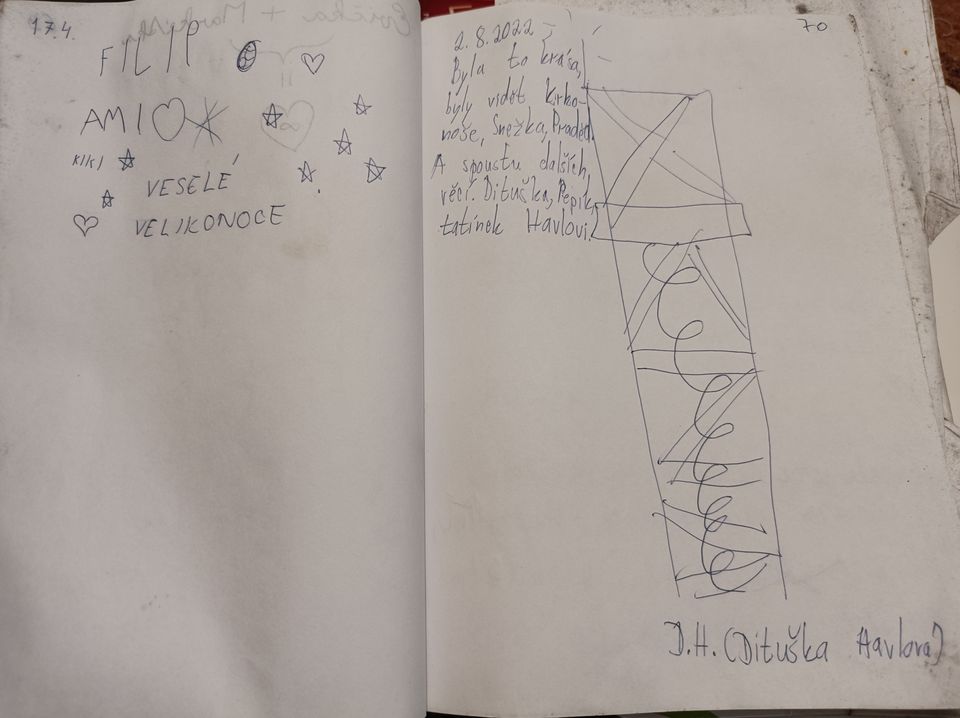 17.4.
FILIP
AMI
KIKI
VESELÉ
VELIKONOCE
70
2.8.2022
Byla to krása,
byly vidět Krko-
noše, Sněžka, Praděd.
A spoustu dalších
věcí. Dituška, Pepík,
tatínek Havlovi.
D.H. (Dituška Havlova)